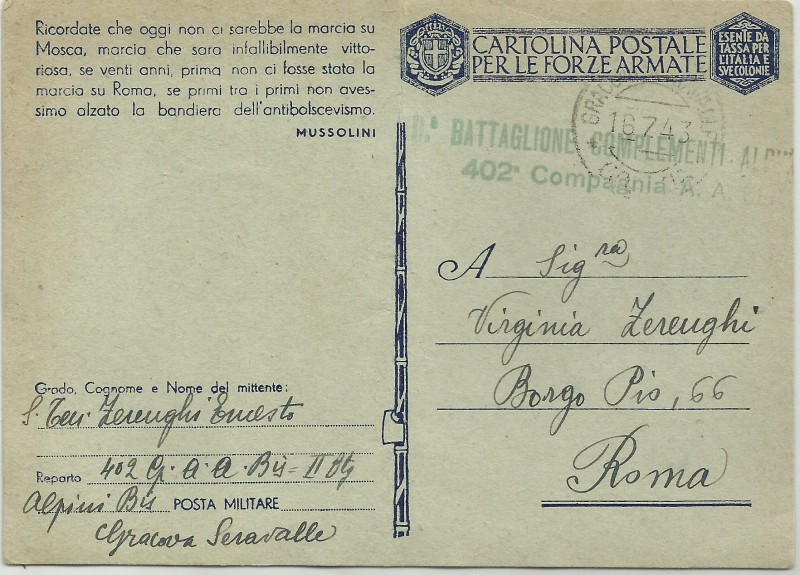 Ricordate che oggi non ci sarebbe la marcia su
Mosca, marcia che sara infallibilmente vitto-
riosa, se venti anni, prima non ci fosse stata la
marcia su Roma, se primi tra i primi non aves-
simo alzato la bandiera dell'antibolscevismo.
MUSSOLINI
CARTOLINA POSTALE
PER LE FORZE ARMATE
ESENTE DA
TASSA PER
L'ITALIA E
SVE COLONIE
16.7.43
BATTAGLIONE COMPLEMENTI
402ª Compagnia A. A.
A Sig.ra
Virginia Zerenghi
Borgo Pio, 66
Roma
Grado, Cognome e Nome del mittente:
S. Ten. Zerenghi Ernesto
Reparto 402 Cp. A. A. Bis = II Btg
Alpini Bis POSTA MILITARE
Gracova Seravalle